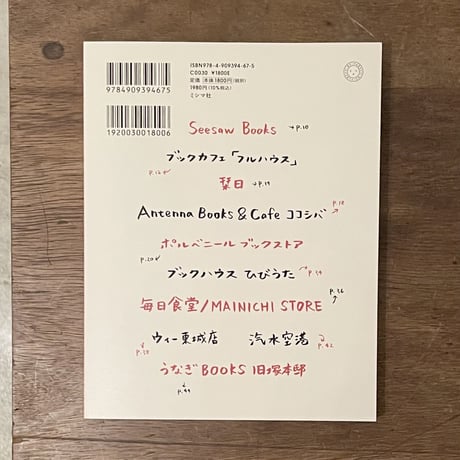 ISBN978-4-909394-67-5
C0030 ¥1800E
定価 本体1800円(税別)
1980円(10%税込)
ミシマ社
9784909394675
1920030018006
Seesaw Books →p.10
ブックカフェ「フルハウス」
p.12
栞日 →p.14
Antenna Books & Cafe ココシバ p.18
ポルベニール ブックストア
p.20
ブックハウス ひびうた p.24
毎日食堂/MAINICHI STORE p.26
ウィー東城店 汽水空港
p.38 p.42
うなぎ BOOKS 旧塚本邸
p.44